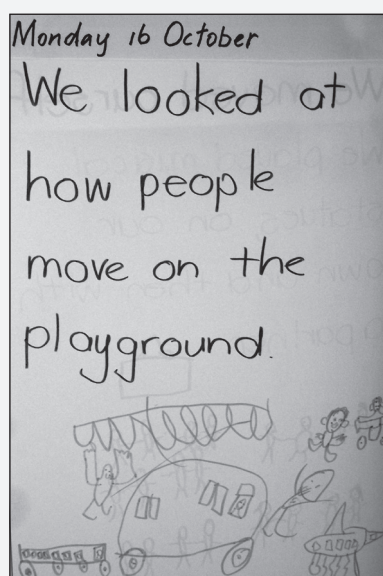 Monday 16 October
We looked at
how people
move on the
playground.